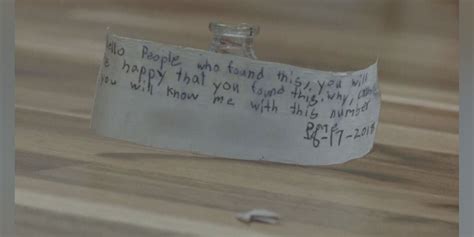 ello People who found this, you will
e happy that you found this, why,
you will know me with this number
-17-2018